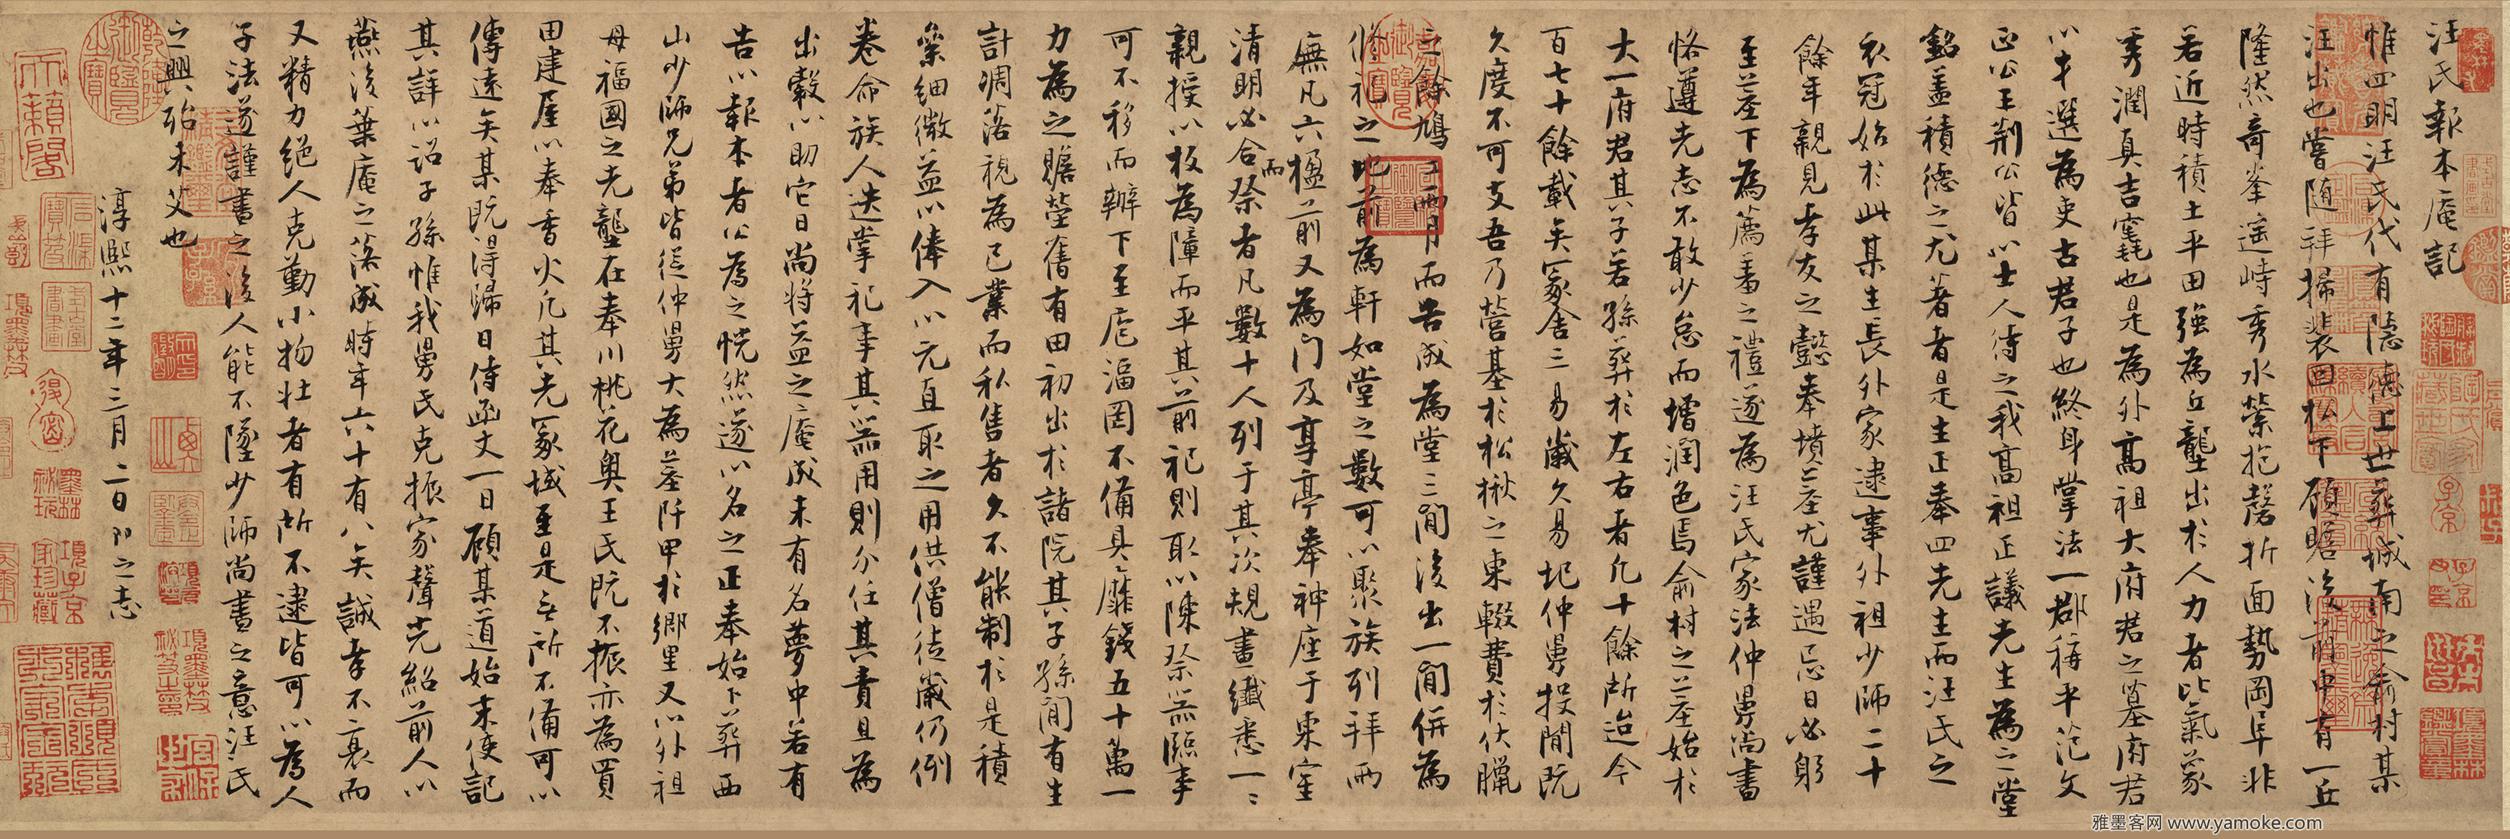 汪氏報本庵記
惟四明汪氏代有隱德上世葬城南之俞村某
汪出也嘗随拜掃裴回松下顧瞻後前中有一丘
隆然奇峯遥峙秀水縈抱磬折面勢岡阜非
若近時積土平田強為丘壟出於人力者比氣象
秀潤真吉竁也是為外高祖大府君之墓府君
以才選為吏古君子也終身掌法一郡稱平范文
正公王荆公皆以士人待之我高祖正議先生為之堂
銘盖積德之尤著者是生正奉四先生而汪氏之
衣冠始於此某生長外家逮事外祖少師二十
餘年親見孝友之懿奉墳墓尤謹遇忌日必躬
至墓下為薦畨之禮遂為汪氏家法仲舅尚書
恪遵先志不敢少怠而増潤色焉俞村之墓始於
大一府君其子若孫葬於左右者凡十餘所迨今
百七十餘載矣冢舍三易歲久易圮仲舅投閒既
久度不可支吾乃營基於松楸之東輟費於伏臘
之餘鳩工兩月而告成為堂三間後出一間併為
脩祀之地前為軒如堂之數可以聚族列拜兩
廡凡六楹前又為門及享亭奉神座于東室
清明必合祭而者凡數十人列于其次規畫纖悉一二
親授以板為障而平其前祀則取以陳祭器臨事
可不移而辦下至庖湢罔不備具靡錢五十萬一
力為之贍塋舊有田初出於諸院其子孫間有生
計凋落視為己業而私售者久不能制於是積
絫細微益以俸入以元直取之用供僧徒歲仍例
卷命族人迭掌祀事其器用則分任其責且為
出穀以助它日尚将益之庵成未有名夢中若有
告以報本者公為之恍然遂以名之正奉始卜葬西
山少師兄弟皆從仲舅大為墓阡甲於鄉里又以外祖
母福國之先壟在奉川桃花奥王氏既不振亦為買
田建屋以奉香火凡其先冢域至是无所不備可以
傳遠矣某既得歸日侍函丈一日顧某道始末使記
其詳以詔子孫惟我舅氏克振家聲光紹前人以
燕後葉庵之落成時年六十有八矣誠孝不衰而
又精力絕人克勤小物壮者有所不逮皆可以為人
子法遂謹書之後人能不墜少師尚書之意汪氏
之興殆未艾也
淳熙十二年三月二日即之志
天籟閣
雅墨客网 www.yamoke.com